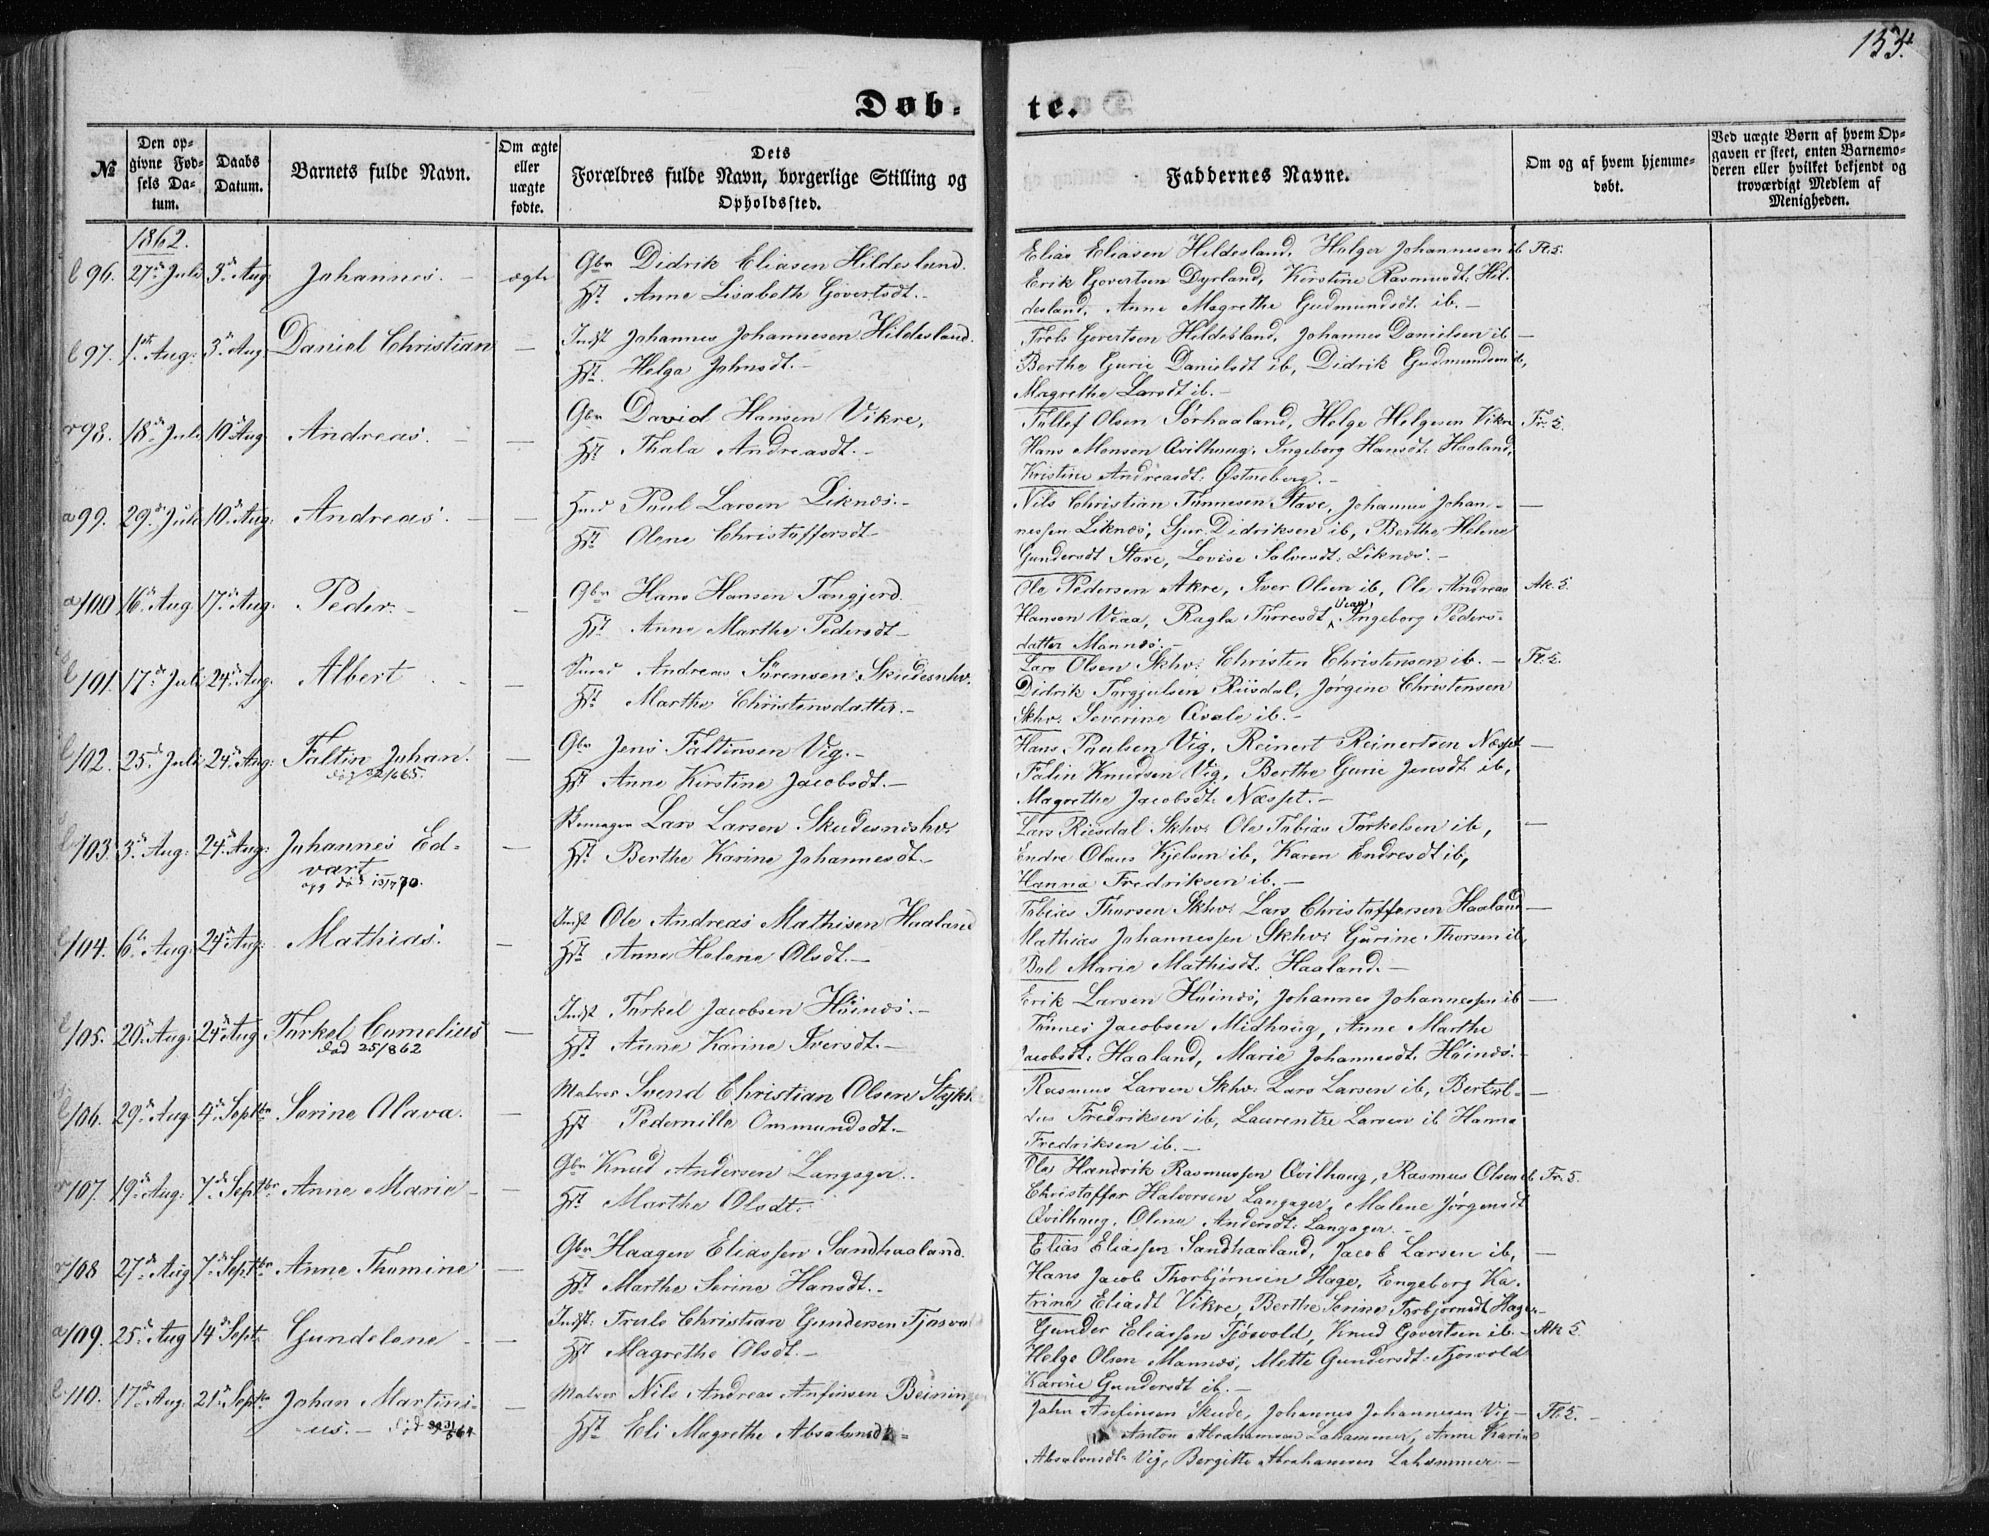 153.
Døb-
te.
№
Den op-
givne Fød-
sels Da-
tum.
Daabs
Datum.
Barnets fulde Navn.
Om ægte
eller
uægte
fødte.
Dets
Forældres fulde Navn, borgerlige Stilling og
Opholdssted.
Faddernes Navne.
Om og af hvem hjemme-
døbt.
Ved uægte Børn af hvem Op-
gaven er skeet, enten Barnemo-
deren eller hvilket bekjendt og
troværdigt Medlem af
Menigheden.
1862.
96. 27de Juli 3de Aug Johannes. ægte Gbr Didrik Eliasen Hildesland.
Hst Anne Lisabeth Govertsdt.
Elias Eliasen Hildesland, Holger Johannesen ib
Erik Govertsen Dyrland, Kirstine Rasmusdt. Hil-
desland, Anne Magrethe Gudmundsdt. ib.
97. 1ste Aug: 3de Aug. Daniel Christian — Indst Johannes Johannesen Hildesland.
Hst. Helga Johnsdt.
Trols Govertsen Hildesland, Johannes Danielsen ib —
Berthe Gurie Danielsdt ib, Didrik Gudmundsen ib,
Magrethe Larsdt ib.
98. 18de Juli 10de Aug Andreas. — Gbr David Hansen Vikre,
Hst Thala Andreasdt.
Tollef Olsen Sørhaaland, Helge Helgesen Vikre
Hans Monsen Qvilhaug. Ingeborg Hansdt. Haaland,
Kristine Andreasdt. Østneberg.
99. 29de Juli 10de Aug: Andreas. — Paul Larsen Liknes.
Hst Olene Christoffersdt
Nils Christian Tønnesen Stave, Johannes Johan-
nessen Liknes, Gjer. Didriksen ib, Berthe Helene
Gundersdt Stave, Lovise Salvesdt. Liknes.
100 16de Aug. 17de Aug. Peder. — Gbr Hans Hansen Tangjerd.
Hst Anne Marthe Pedersdt
Ole Pedersen Akre, Iver Olsen ib, Ole Andreas Ak. 5.
Hansen Veaa, Ragla Torresdt Veaa, Ingeborg Peders-
datter Mannes.
101. 17de Juli 24de Aug: Albert — Andreas Sörensen Skudesnhv.
Hst Marthe Christensdatter.
Lars Olsen Skhv: Christen Christensen ib. —
Didrik Torgjulsen Riisdal, Jørgine Christensen
Skhv. Severine Qvale ib.
102. 25de Juli 24de Aug: Faltin Johan.
Gbr Jens Faltinsen Vig.
Hst Anne Kirstine Jacobsdt.
Hans Paulsen Vig, Reinert Reinertsen Næsset —
Falin Knudsen Vig, Berthe Gurie Jensdt. ib,
Magrethe Jacobsdt. Næsset.
103. 3de Aug: 24de Aug: Johannes Ed-
vart — Lars Larsen Skudesneshv.
Hst. Berthe Karine Johannesdt.
opg død 13/7 70.
Lars Riisdal Skhv: Ole Tobias Torkelsen ib,
Endre Olaus Kjelsen ib, Karen Endresdt ib,
Hanna Fredriksen ib.
104. 6te Aug: 24de Aug: Mathias. — Indst Ole Andreas Mathisen Haaland
Hst Anne Helene Olsdt.
Tobias Thorsen Skhv: Lars Christoffersen Haaland
Mathias Johannessen Skhv: Gurine Thorsen ib,
Bol Marie Mathisdt. Haaland.
105. 20de Aug: 24de Aug. Torkel Cornelius — Indst Torkel Jacobsen Höines.
død 25/8 62
Hst Anne Karine Iversdt.
Erik Larsen Höines, Johannes Johannessen ib —
Tönnes Jacobsen Midhaug, Anne Marthe
Jacobsdt. Haaland, Marie Johannesdt. Höines.
106. 29de Aug: 4de Septbr Serine Olava. — Matros Svend Christian Olsen
Hst Pedernille Ommundsdt.
Rasmus Larsen Skhv. Lars Larsen ib, Bertol-
dus Fredriksen ib, Laurentze Larsen ib Hanna
Fredriksen ib.
107. 19de Aug: 7de Septbr Anne Marie — Gbr Knud Andersen Langager.
Hst Marthe Olsdt.
Ole Hendrik Rasmussen Qvilhaug, Rasmus Olsen ib
Christoffer Halvorsen Langager, Malene Jørgensdt
Qvilhaug. Olina Andersdt. Langager.
108 27de Aug 7de Septbr Anne Thomine — Gbr Haagen Eliassen Sandhaaland.
Hst Marthe Serine Hansdt.
Elias Eliassen Sandhaaland, Jacob Larsen ib,
Hans Jacob Thorbjørnsen Hage, Engeborg Ka-
trine Eliasdt Vikre, Berthe Serine Torbjørnsdt Hage
109. 25de Aug 14de Sept. Gundelene — Indst: Truls Christian Gundersen
Hst Magrethe Olsdt.
Gunder Eliassen Tjøsvold, Knud Govertsen ib. Ak 5.
Helge Olsen Mannes, Mette Gundersdt. Tjosvold
Karine Gundersdt ib.
110. 17de Aug: 21de Septbr Johan Martini-
us. — Matros Nils Andreas Anfinsen
Hst Eli Magrethe Absalonsdt.
John Anfinsen Skude, Johannes Johannesen Vig
Anton Abrahamsen Lahammer, Anne Karine
Absalonsdt. Vig, Bergitte Abrahamsen Lahammer.